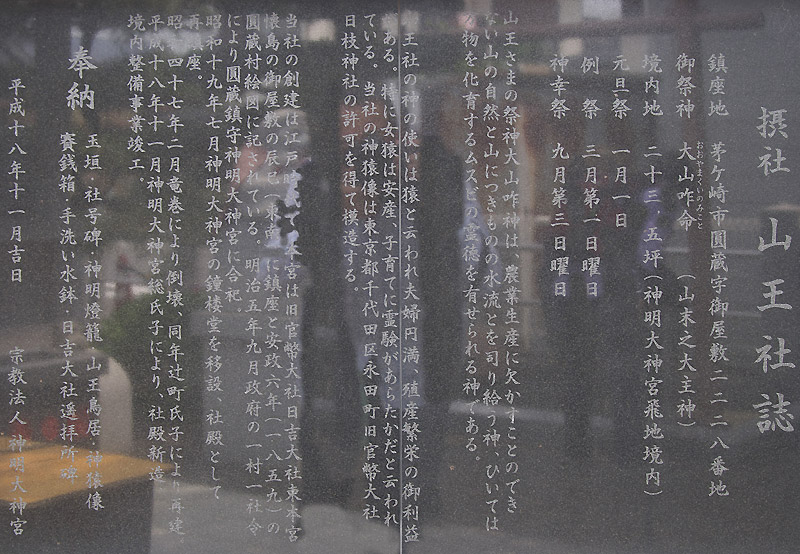 摂社 山王社誌
鎮座地 茅ケ崎市圓蔵字御屋敷二二二八番地
御祭神 大山咋命 (山末之大主神)
おおやまくいのみこと
境内地 二十三.五坪(神明大神宮飛地境内)
元旦祭 一月一日
例祭 三月第一日曜日
神幸祭 九月第三日曜日
山王さまの祭神大山咋神は、農業生産に欠かすことのでき
ない山の自然と山につきものの水流とを司り給う神、ひいては
万物を化育するムスビの霊徳を有せられる神である。
山王社の神の使いは猿と云われ夫婦円満、殖産繁栄の御利益
がある。特に女猿は安産、子育てに霊験があらたかだと云われ
ている。当社の神猿像は東京都千代田区永田町旧官幣大社
日枝神社の許可を得て模造する。
当社の創建は江戸時代で本宮は旧官幣大社日吉大社東本宮
懐島の御屋敷の辰巳(東南)に鎮座と安政六年(一八五九)の
圓蔵村絵図に記されている。明治五年九月政府の一村一社令
により圓蔵鎮守神明大神宮に合祀
昭和十九年七月神明大神宮の鐘楼堂を移設、社殿として
再鎮座。
昭和四十七年二月竜巻により倒壊、同年辻町氏子により再建
平成十八年十一月神明大神宮総氏子により、社殿新造
境内整備事業竣工。
奉納 玉垣・社号碑・神明燈籠・山王鳥居・神猿像
賽銭箱・手洗い水鉢・日吉大社遥拝所碑
平成十八年十一月吉日 宗教法人神明大神宮